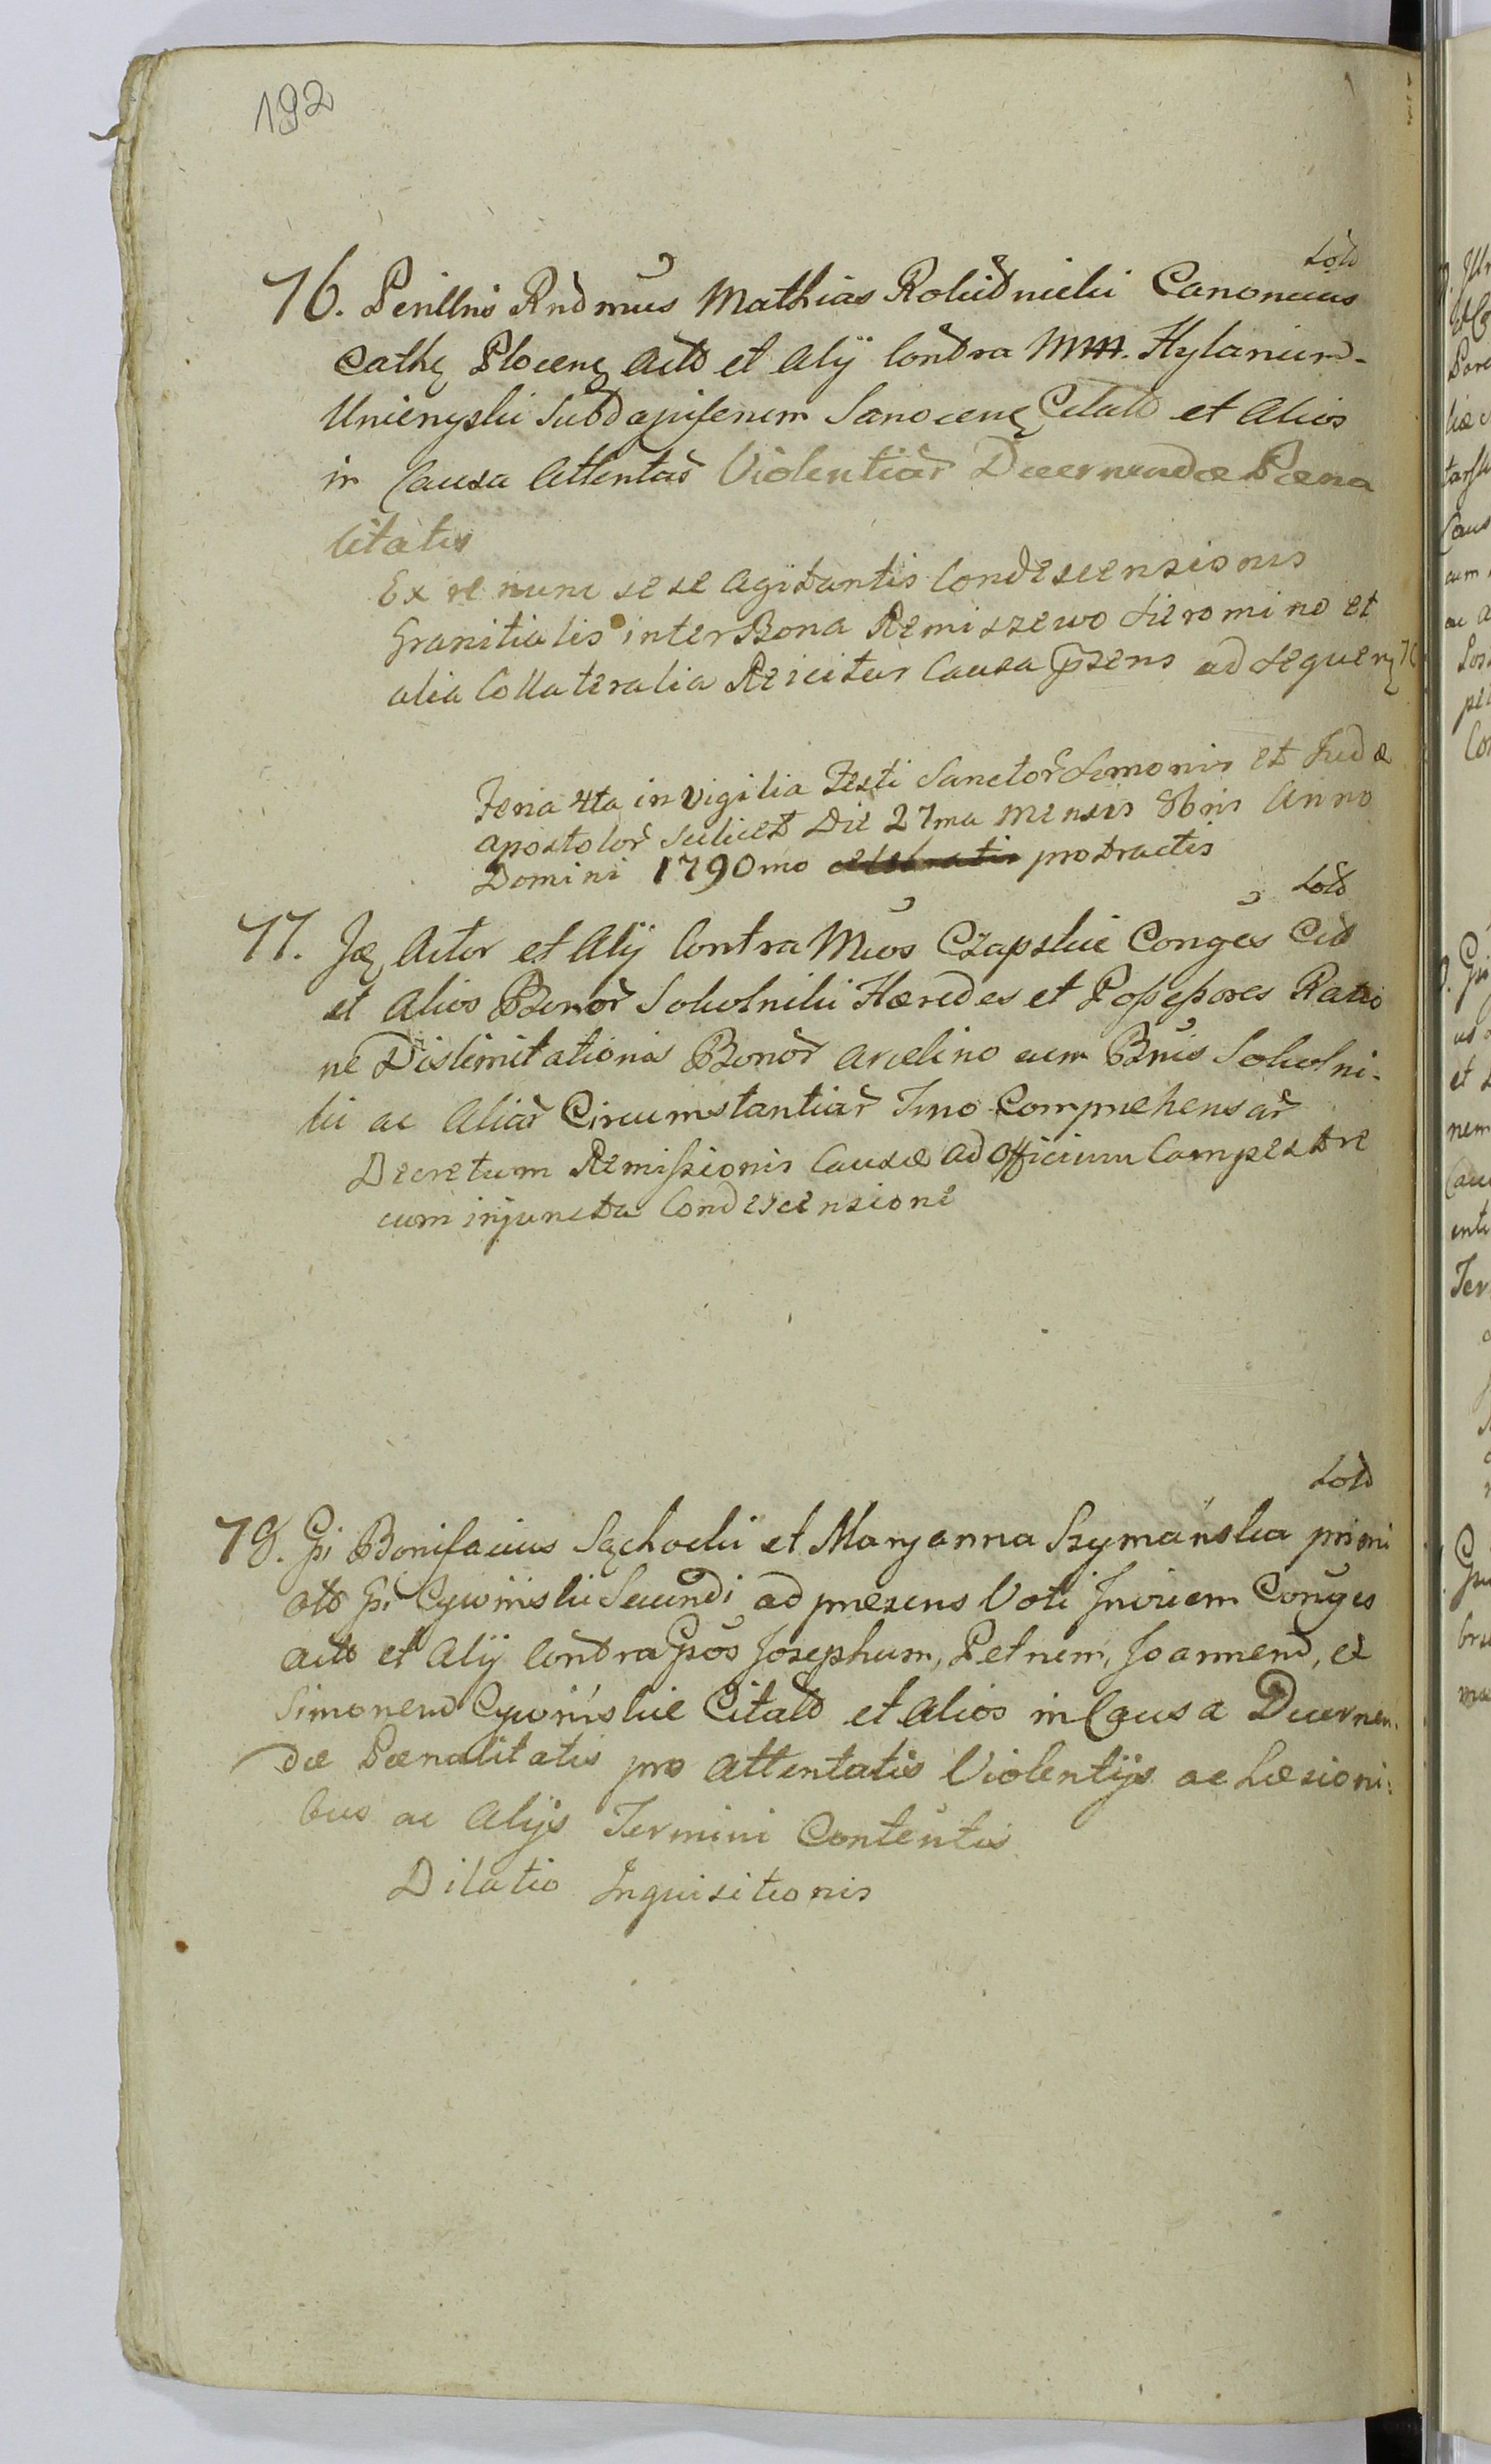 192
76. Perillris Rndmus Mathias Rokitnicki Canonicus
Cathe Plocens Actt et Alij Contra M. Hylarium
Unierzyski Subdapiferum Sanocens Citatt et Alios
in Causa Attentar Violentiar Decernendæ Pæna
litatis
Ex re nunc sese agitantis Condescensionis
Granitialis inter Bona Remiszewo Sieromino et
alia Collateralia Reicitur Causa Psens ad Sequen
Feria 4ta in vigilia Festi Sanctor Simonis et Judæ
Apostolor scilicet Die 27ma Mensis 8bris Anno
Domini 1790mo celebratis protractis
77. Actor et Alij Contra Mcos Czapskie Conges Citt
et Alios Bonor Sokolniki Hæredes et Possessores Ratio
ne Dislimitationis Bonor Arcelino cum Bnis Sokolni-
ki ac Aliar Circumstantiar Tmno Comprehensar
Decretum Remissionis Causæ ad Officium Campestre
cum injuncta Condescensione
78. Gsi Bonifacius Sęchocki et Maryanna Szymańska primi
Gsi Cywiński Secundi ad præsens Voti Invicem Conges
Actt et Alij Contra Gsos Josephum, Petrum, Joannem, et
Simonem Cywińskie Citatt et Alios in Causa Decernen-
dæ Pænalitatis pro Attentatis Violentijs ac Læsioni-
bus ac Alijs Termini Contentis
Dilatio Inquisitionis